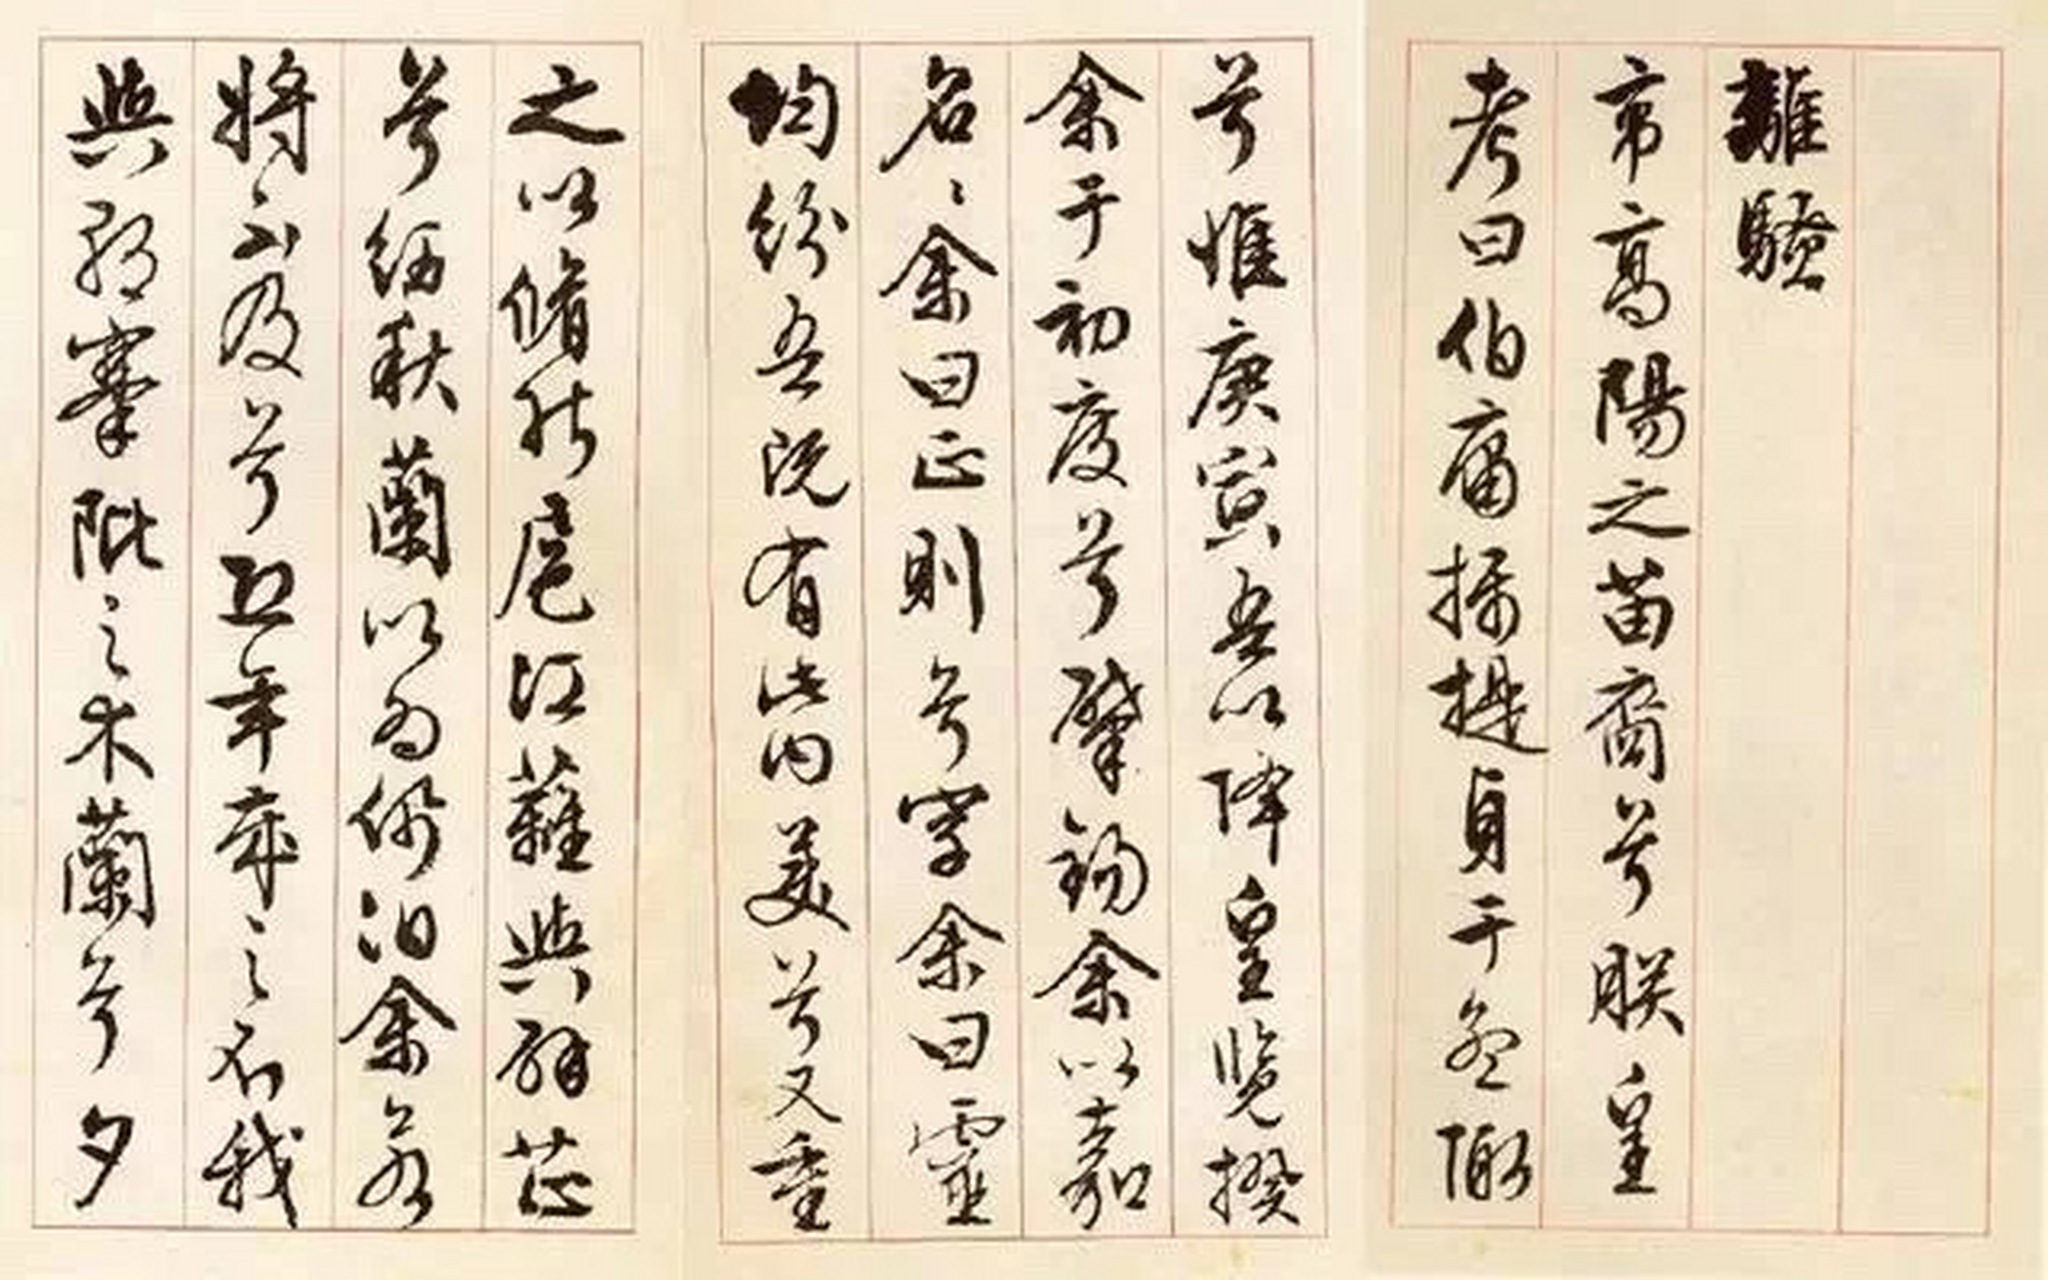 離騷
帝高陽之苗裔兮朕皇
考曰伯庸攝提貞于孟陬
兮惟庚寅吾以降皇覽揆
余于初度兮肇錫余以嘉
名〻余曰正則兮字余曰靈
均紛吾既有此内美兮又重
之以脩能扈江蘺與辟芷
兮紉秋蘭以為佩汨余若
將不及兮恐年歲之不我
與朝搴阰之木蘭兮夕